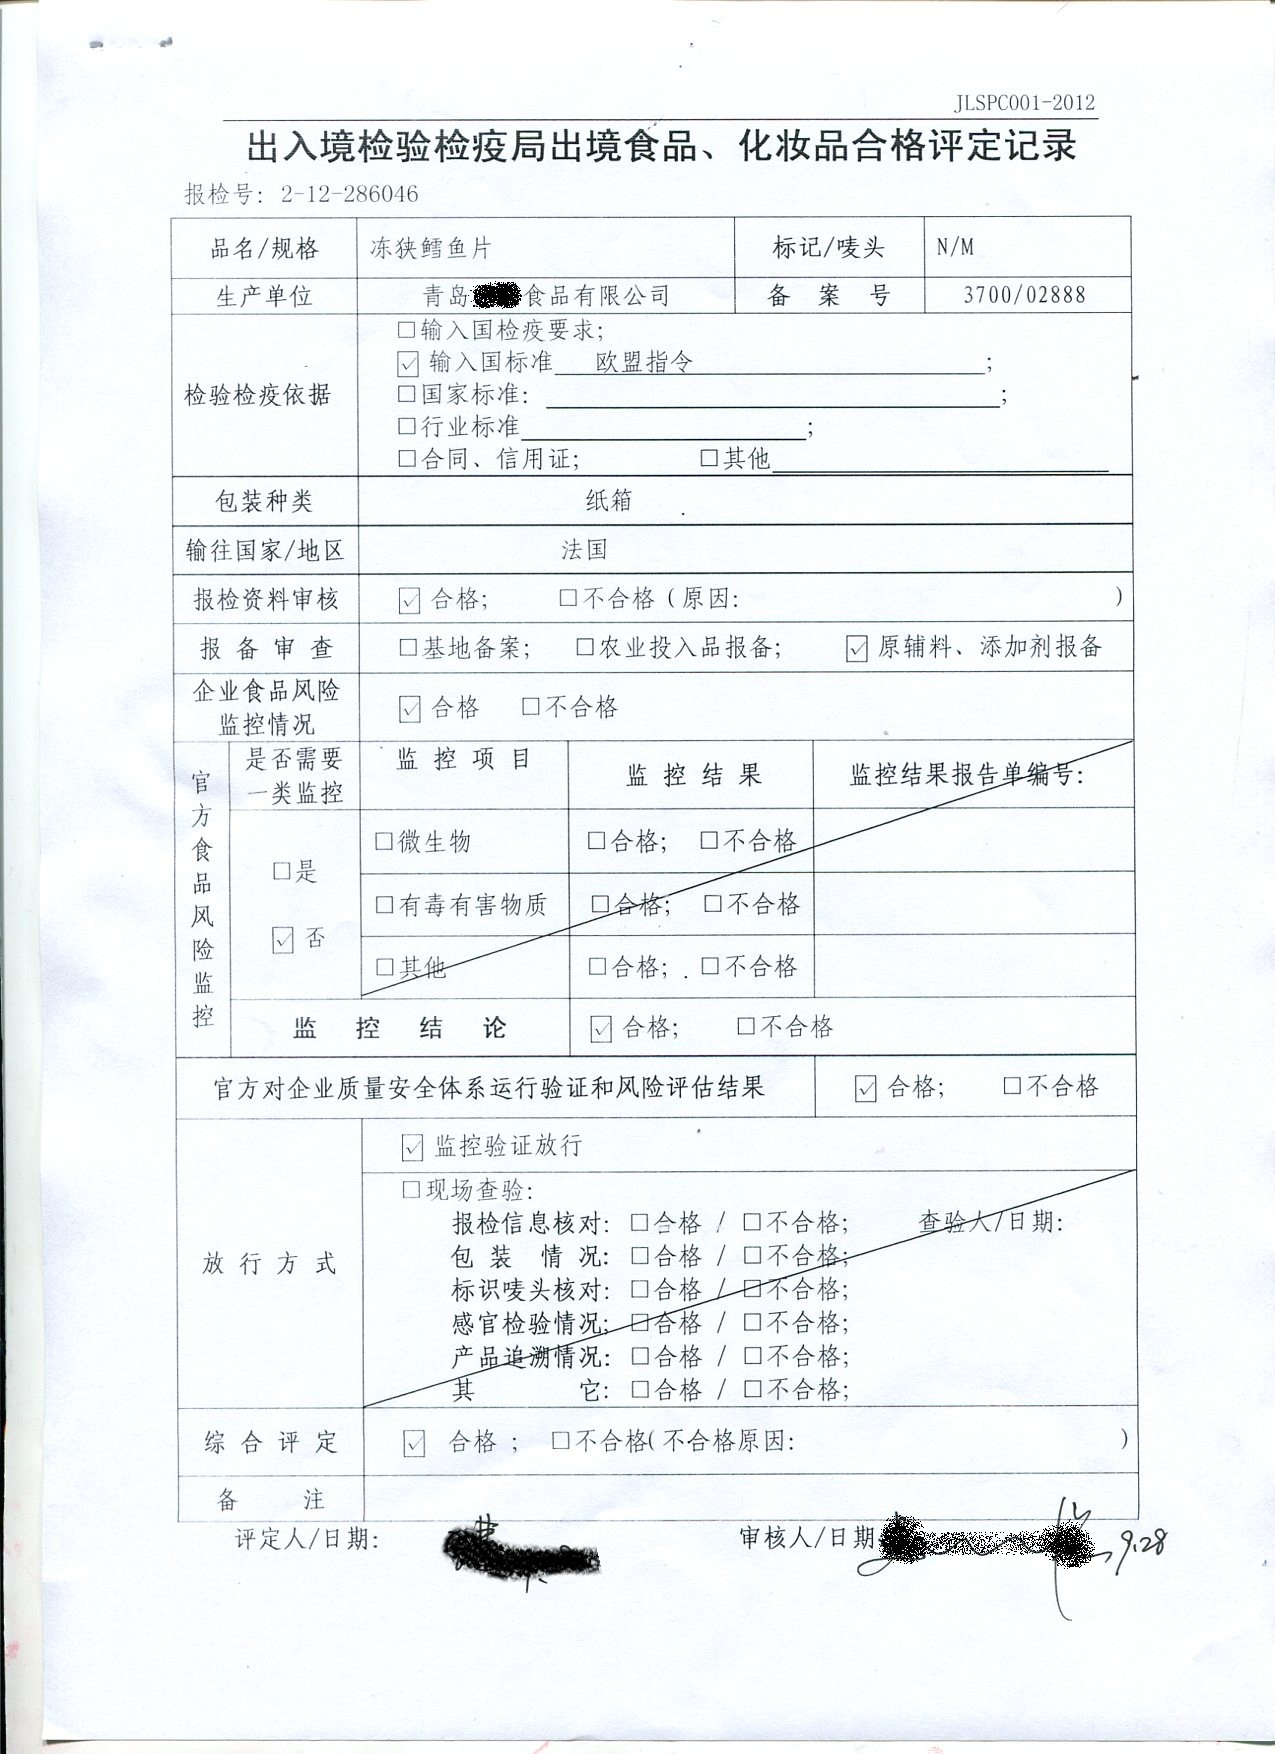 JLSPC001-2012
出入境检验检疫局出境食品、化妆品合格评定记录
报检号: 2-12-286046
品名/规格 冻狭鳕鱼片 标记/唛头 N/M
生产单位 青岛 食品有限公司 备案号 3700/02888
检验检疫依据
□输入国检疫要求;
☑输入国标准 欧盟指令 ;
□国家标准: ;
□行业标准 ;
□合同、信用证; □其他
包装种类 纸箱
输往国家/地区 法国
报检资料审核 ☑合格; □不合格(原因: )
报备审查 □基地备案; □农业投入品报备; ☑原辅料、添加剂报备
企业食品风险
监控情况
☑合格 □不合格
官方食品风险监控
是否需要
一类监控
监控项目 监控结果 监控结果报告单编号:
□是
☑否
□微生物 □合格; □不合格
□有毒有害物质 □合格; □不合格
□其他 □合格; □不合格
监控结论 ☑合格; □不合格
官方对企业质量安全体系运行验证和风险评估结果 ☑合格; □不合格
放行方式
☑监控验证放行
□现场查验:
报检信息核对: □合格 / □不合格; 查验人/日期:
包装情况: □合格 / □不合格;
标识唛头核对: □合格 / □不合格;
感官检验情况; □合格 / □不合格;
产品追溯情况: □合格 / □不合格;
其它: □合格 / □不合格;
综合评定 ☑合格; □不合格(不合格原因: )
备注
评定人/日期: 审核人/日期 9.28